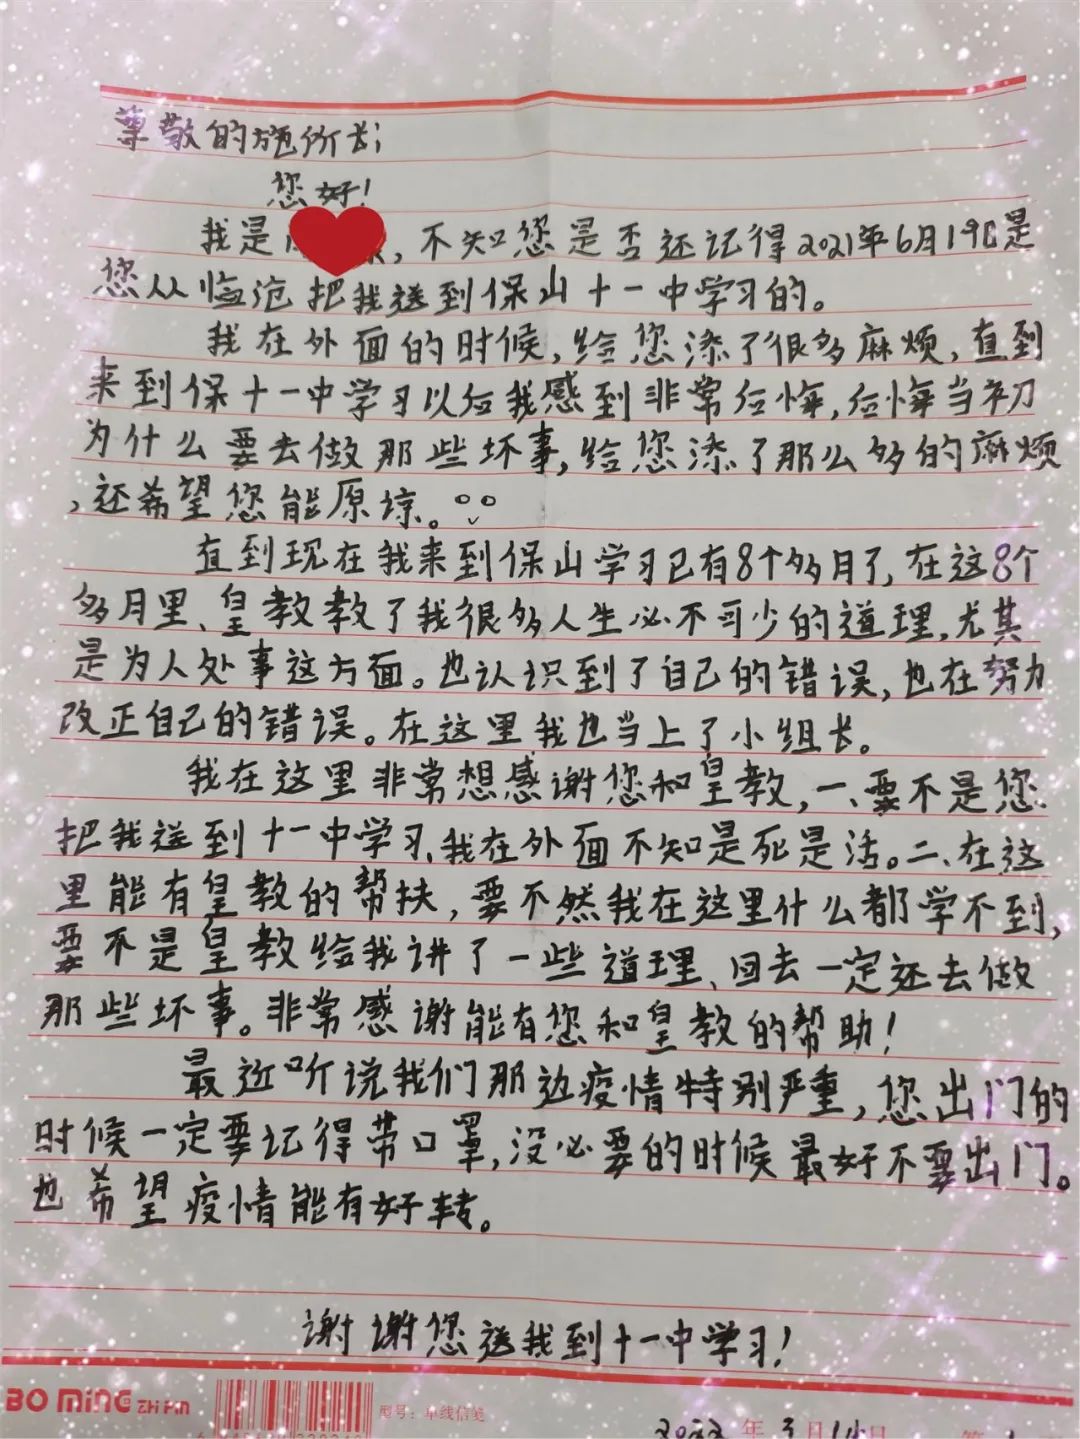 尊敬的施所长；
您好！
我是，不知您是否还记得2021年6月19日是
您从临沧把我送到保山十一中学习的。
我在外面的时候，给您添了很多麻烦，直到
来到保十一中学习以后我感到非常后悔，后悔当初
为什么要去做那些坏事，给您添了那么多的麻烦
，还希望您能原谅。
直到现在我来到保山学习已有8个多月了，在这8个
多月里、皇教教了我很多人生必不可少的道理，尤其
是为人处事这方面。也认识到了自己的错误，也在努力
改正自己的错误。在这里我也当上了小组长。
我在这里非常想感谢您和皇教，一、要不是您
把我送到十一中学习、我在外面不知是死是活。二、在这
里能有皇教的帮扶，要不然我在这里什么都学不到，
要不是皇教给我讲了一些道理、回去一定还去做
那些坏事。非常感谢能有您和皇教的帮助！
最近听说我们那边疫情特别严重，您出门的
时候一定要记得带口罩，没必要的时候最好不要出门。
也希望疫情能有好转。
谢谢您送我到十一中学习！
BO MING ZHI PIN
型号：单线信笺
2022年3月14日 第1